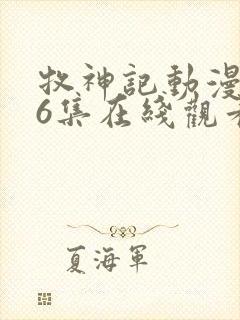 牧神記動漫
6集在綫觀看
夏海軍